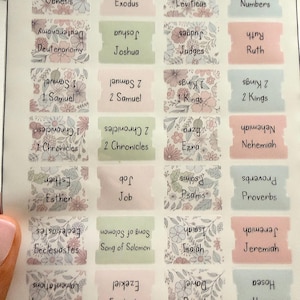 Genesis Exodus Leviticus Numbers
Deuteronomy Joshua Judges Ruth
Deuteronomy Joshua Judges Ruth
1 Samuel 2 Samuel 1 Kings 2 Kings
1 Samuel 2 Samuel 1 Kings 2 Kings
1 Chronicles 2 Chronicles Ezra Nehemiah
1 Chronicles 2 Chronicles Ezra Nehemiah
Esther Job Psalms Proverbs
Esther Job Psalms Proverbs
Ecclesiastes Song of Solomon Isaiah Jeremiah
Ecclesiastes Song of Solomon Isaiah Jeremiah
Lamentations Ezekiel Daniel Hosea